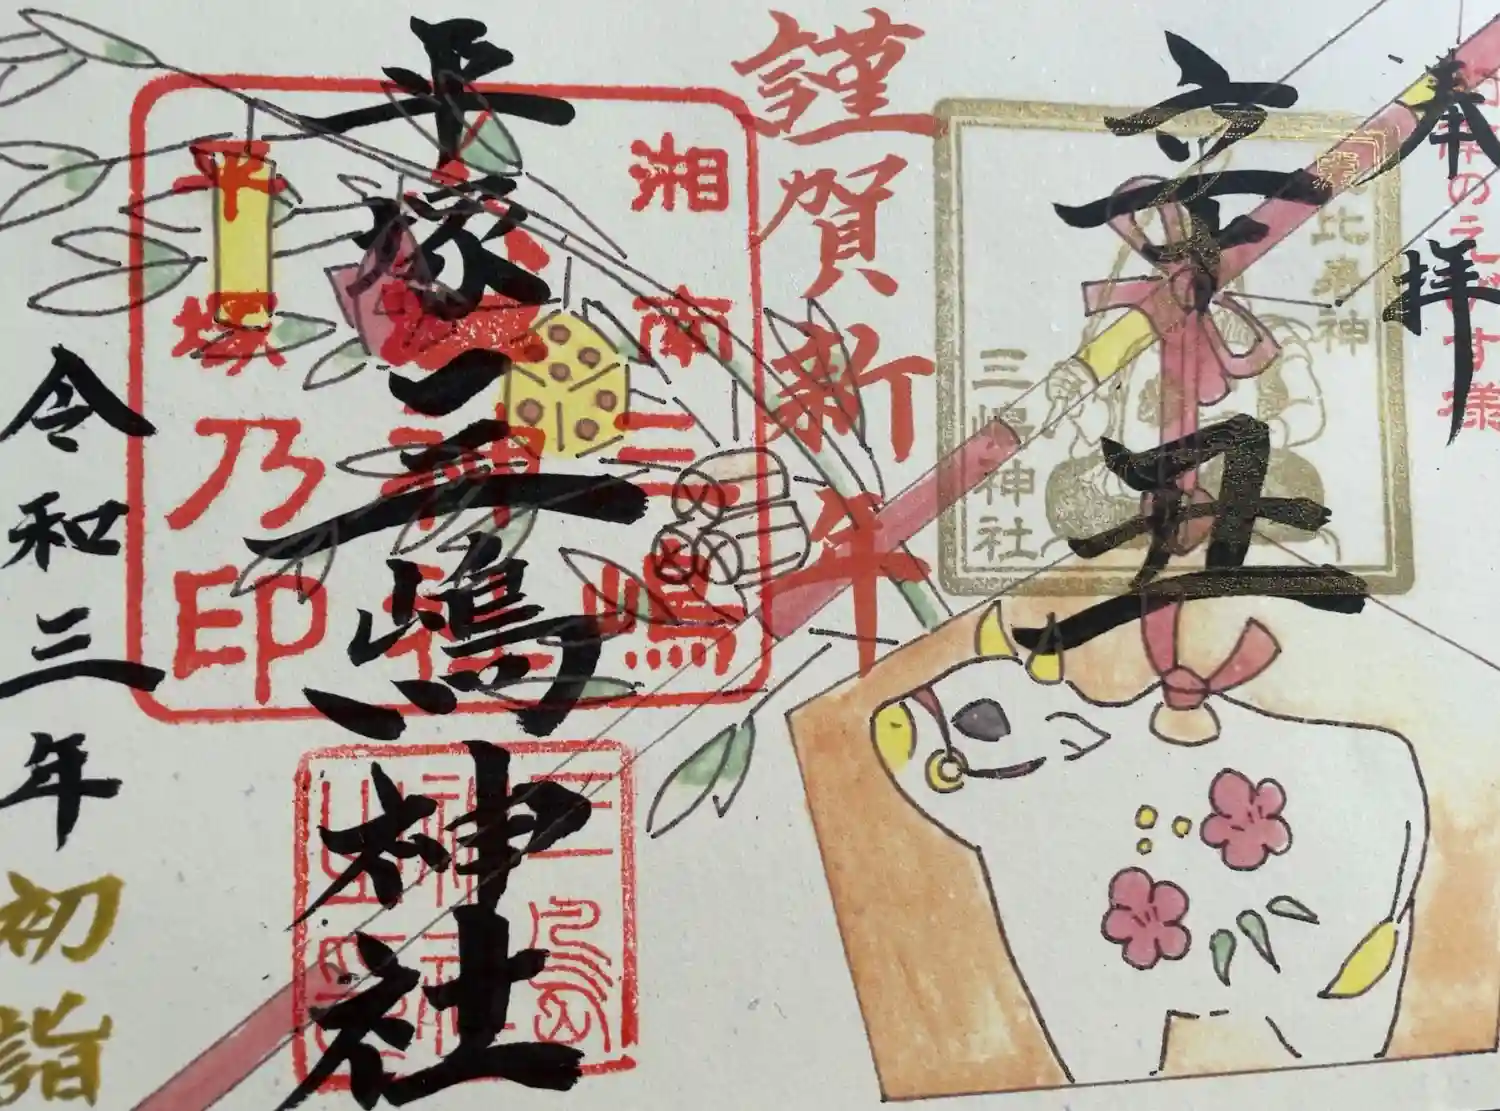 奉拝
相神のえびす様
辛丑
恵比寿神
三嶋神社
謹賀新年
湘南三嶋
平塚三嶋神社
平塚乃印
三嶋神社之印
令和三年
初詣